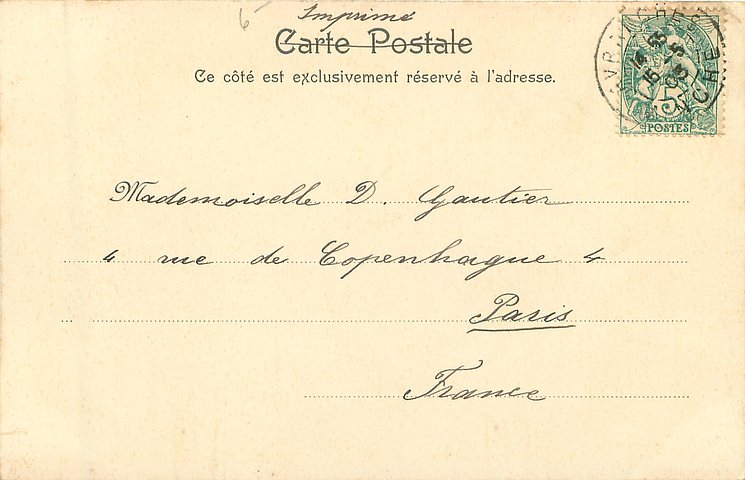 6
Imprimé
Carte Postale
Ce côté est exclusivement réservé à l'adresse.
AVRANCHES
MANCHE
5
POSTES
Mademoiselle D. Gautier
4 rue de Copenhague 4
Paris
France